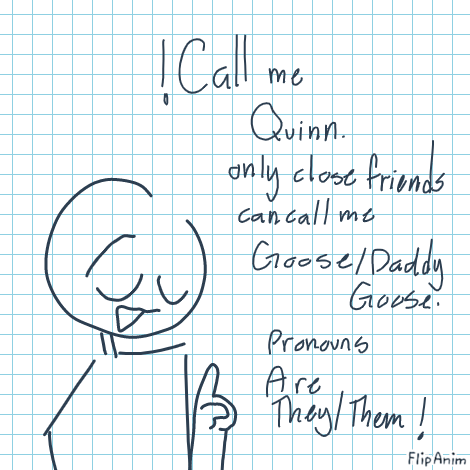 ! Call me
Quinn.
only close friends
can call me
Goose/Daddy
Goose.
Pronouns
Are
They/Them!
FlipAnim